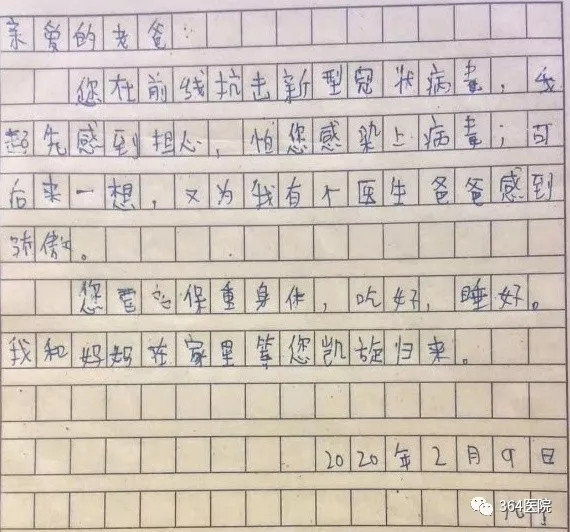 亲爱的老爸：
您在前线抗击新型冠状病毒，我
起先感到担心，怕您感染上病毒；可
后来一想，又为我有个医生爸爸感到
骄傲。
您要 保重身体，吃好，睡好。
我和妈妈在家里等您凯旋归来。
2020年2月9日
364医院